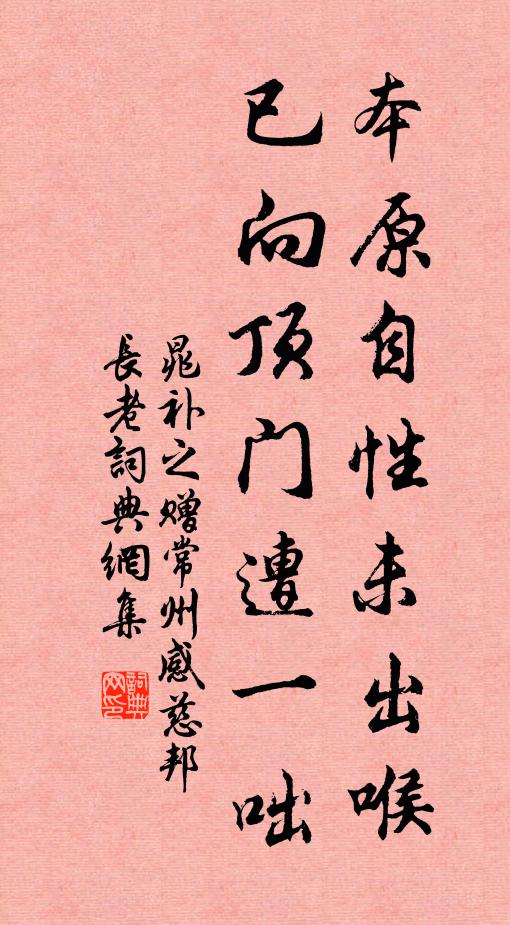 本原自性未出喉
已向顶门遭一咄
晁补之赠常州感慈邦
長老詞典網集
詞典网印